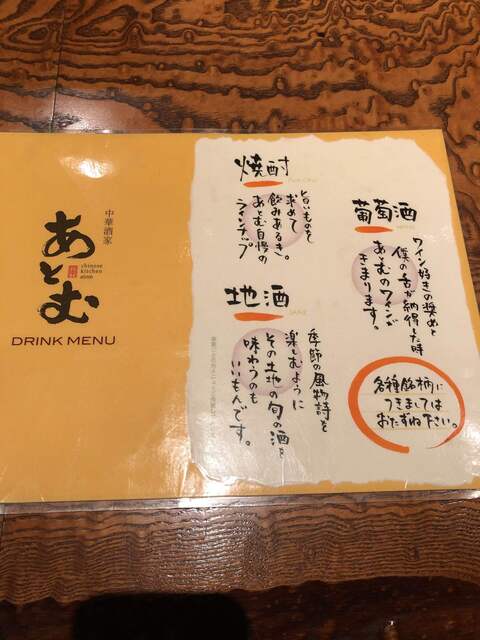 中華酒家
あとむ
chinese
kitchen
atom
DRINK MENU
葡萄酒
ワイン好きの奨めと
僕の舌が納得した時
あとむのワインが
きまります。
各種銘柄に
つきましては
おたずね下さい。
焼酎
旨いものを
求めて
飲みあるき。
あとむ自慢の
ラインナップ
地酒
SAKE
季節の風物詩を
楽しむように
その土地の旬の酒を
味わうのも
いいもんです。